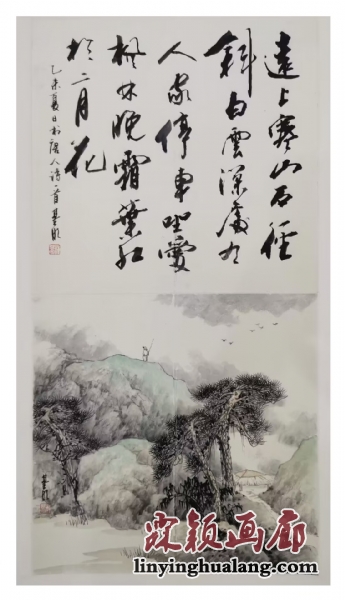 遠上寒山石徑
斜白雲深處有
人家停車坐愛
楓林晚霜葉紅
於二月花
乙未夏日 唐人詩一首
霖颖画廊
linyinghualang.com